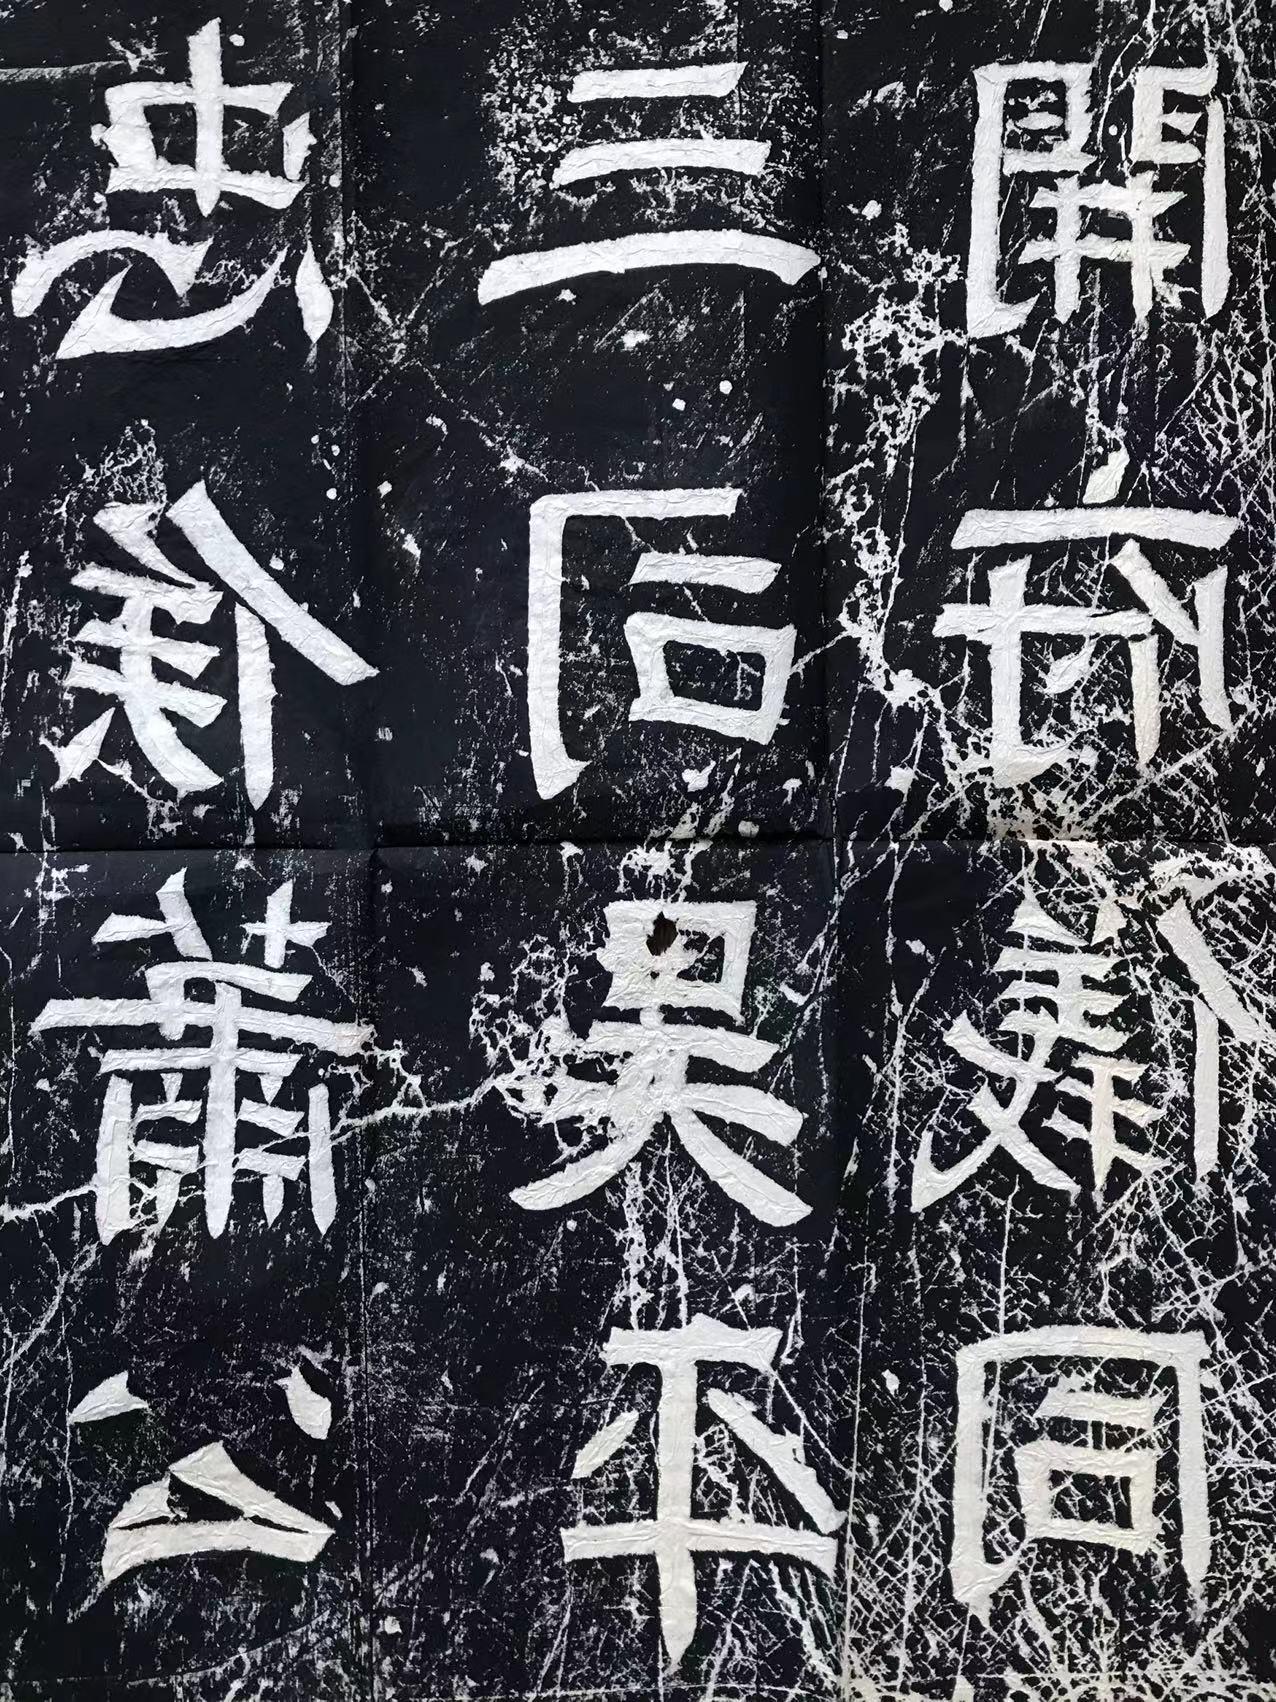 開府儀同
三司吳平
忠侯蕭公